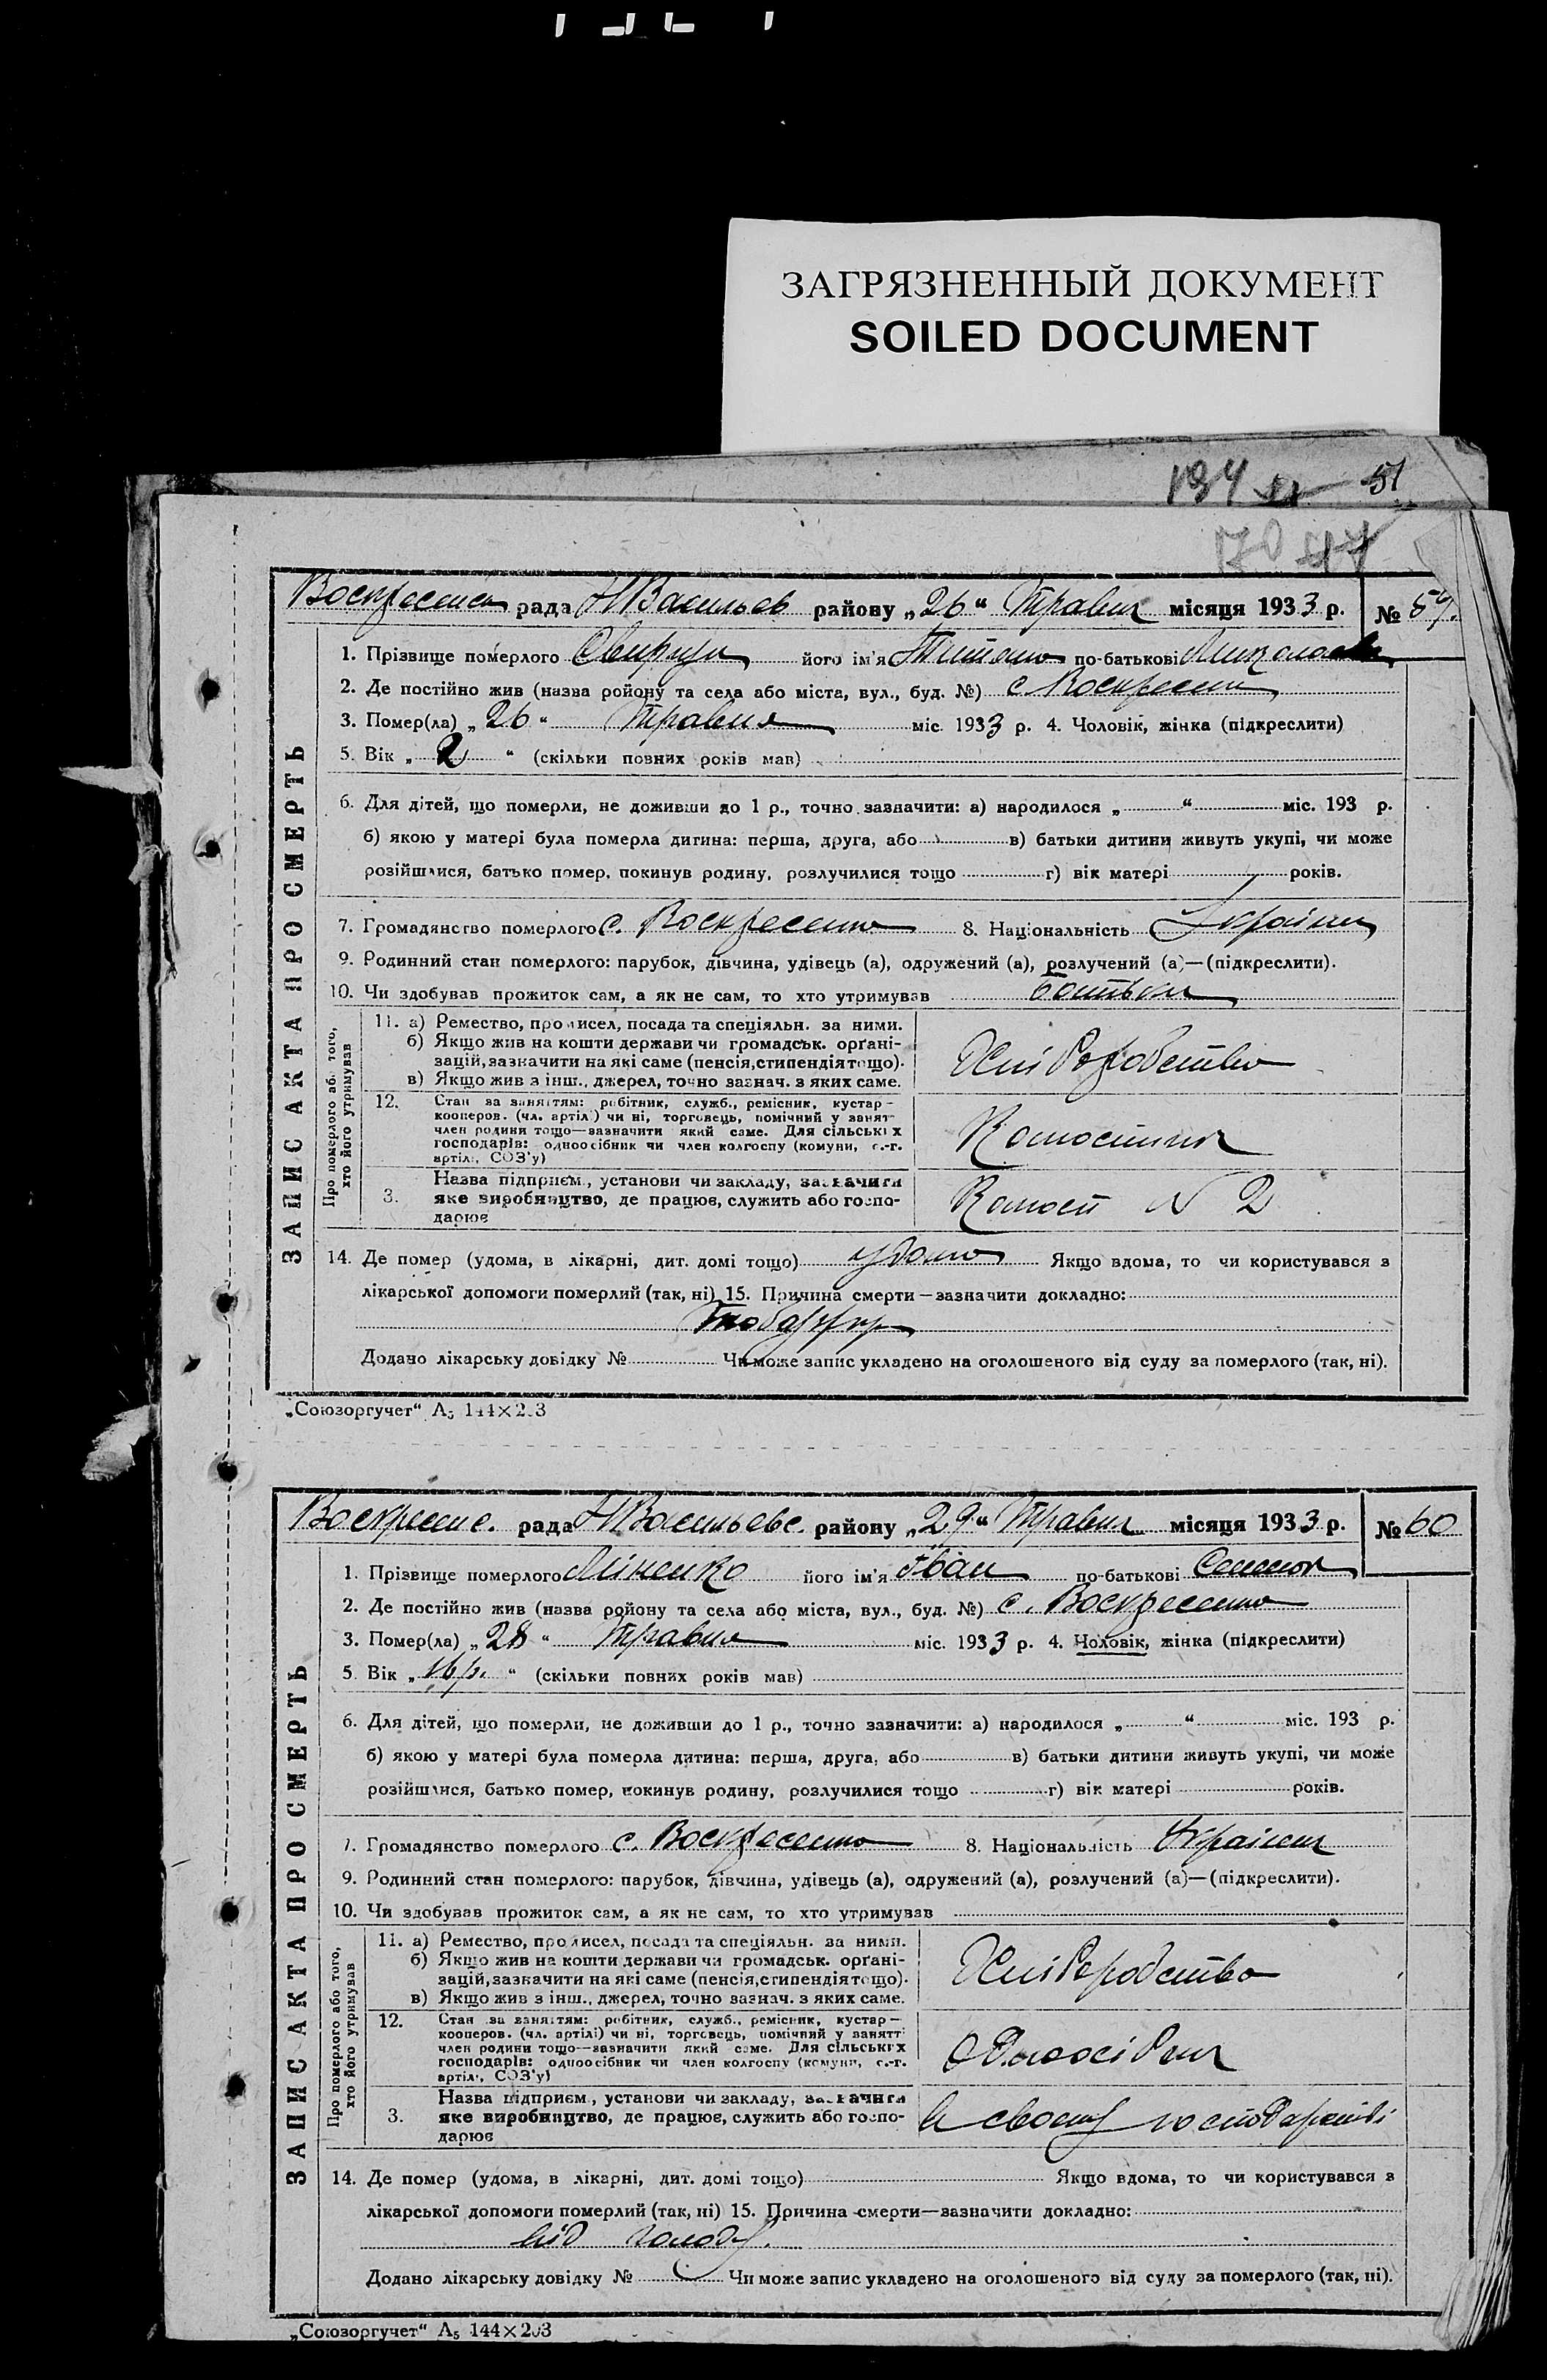 ЗАГРЯЗНЕННЫЙ ДОКУМЕНТ
SOILED DOCUMENT
194 51
70 47
Воскресенск рада НВасильев району „26“ Травня місяця 1933 р. № 59.
ЗАПИС АКТА ПРО СМЕРТЬ
1. Прізвище померлого його ім'я по-батькові
2. Де постійно жив (назва ройону та села або міста, вул., буд. №) с Воскресенка
3. Помер(ла) „26“ Травня міс. 1933 р. 4. Чоловік, жінка (підкреслити)
5. Вік „2“ (скільки повних років мав)
6. Для дітей, що померли, не доживши до 1 р., точно зазначити: а) народилося „ “ міс. 193 р.
б) якою у матері була померла дитина: перша, друга, або в) батьки дитини живуть укупі, чи може
розійшлися, батько помер, покинув родину, розлучилися тощо г) вік матері років.
7. Громадянство померлого с. Воскресенка 8. Національність Україн
9. Родинний стан померлого: парубок, дівчина, удівець (а), одружений (а), розлучений (а)—(підкреслити).
10. Чи здобував прожиток сам, а як не сам, то хто утримував батьки
Про померлого або того, хто його утримував
11. а) Ремество, промисел, посада та спеціяльн. за ними.
б) Якщо жив на кошти держави чи громадськ. орґані-
зацій, зазначити на які саме (пенсія, стипендія тощо).
в) Якщо жив з інш., джерел, точно зазнач. з яких саме.
Хліборобство
12. Стан за заняттям: робітник, служб., ремісник, кустар—
кооперов. (чл. артілі) чи ні, торговець, помічний у занятт
член родини тощо—зазначити який саме. Для сільських
господарів: одноосібник чи член колгоспу (комуни, с.-г.
артілі, СОЗ'у)
Колгоспник
3. Назва підприєм., установи чи закладу, зазначити
яке виробництво, де працює, служить або госпо-
дарює
Колгосп N 2
14. Де помер (удома, в лікарні, дит. домі тощо) удома Якщо вдома, то чи користувався з
лікарської допомоги померлий (так, ні) 15. Причина смерти—зазначити докладно:
Додано лікарську довідку № Чи може запис укладено на оголошеного від суду за померлого (так, ні).
„Союзоргучет“ А5 144×203
Воскресенс. рада НВасильевс. району „29“ Травня місяця 1933 р. № 60
ЗАПИС АКТА ПРО СМЕРТЬ
1. Прізвище померлого Міненко його ім'я Іван по-батькові Семенов
2. Де постійно жив (назва ройону та села або міста, вул., буд. №) с. Воскресенка
3. Помер(ла) „28“ Травня міс. 1933 р. 4. Чоловік, жінка (підкреслити)
5. Вік „16р.“ (скільки повних років мав)
6. Для дітей, що померли, не доживши до 1 р., точно зазначити: а) народилося „ “ міс. 193 р.
б) якою у матері була померла дитина: перша, друга, або в) батьки дитини живуть укупі, чи може
розійшлися, батько помер, покинув родину, розлучилися тощо г) вік матері років.
7. Громадянство померлого с. Воскресенка 8. Національність Україн
9. Родинний стан померлого: парубок, дівчина, удівець (а), одружений (а), розлучений (а)—(підкреслити).
10. Чи здобував прожиток сам, а як не сам, то хто утримував
Про померлого або того, хто його утримував
11. а) Ремество, промисел, посада та спеціяльн. за ними.
б) Якщо жив на кошти держави чи громадськ. орґані-
зацій, зазначити на які саме (пенсія, стипендія тощо).
в) Якщо жив з інш., джерел, точно зазнач. з яких саме.
Хліборобство
12. Стан за заняттям: робітник, служб., ремісник, кустар—
кооперов. (чл. артілі) чи ні, торговець, помічний у занятті
член родини тощо—зазначити який саме. Для сільських
господарів: одноосібник чи член колгоспу (комуни, с.-г.
артілі, СОЗ'у)
Одноосібник
3. Назва підприєм., установи чи закладу, зазначити
яке виробництво, де працює, служить або госпо-
дарює
в своєму господарстві
14. Де помер (удома, в лікарні, дит. домі тощо) Якщо вдома, то чи користувався з
лікарської допомоги померлий (так, ні) 15. Причина смерти—зазначити докладно:
від голоду.
Додано лікарську довідку № Чи може запис укладено на оголошеного від суду за померлого (так, ні).
„Союзоргучет“ А5 144×203